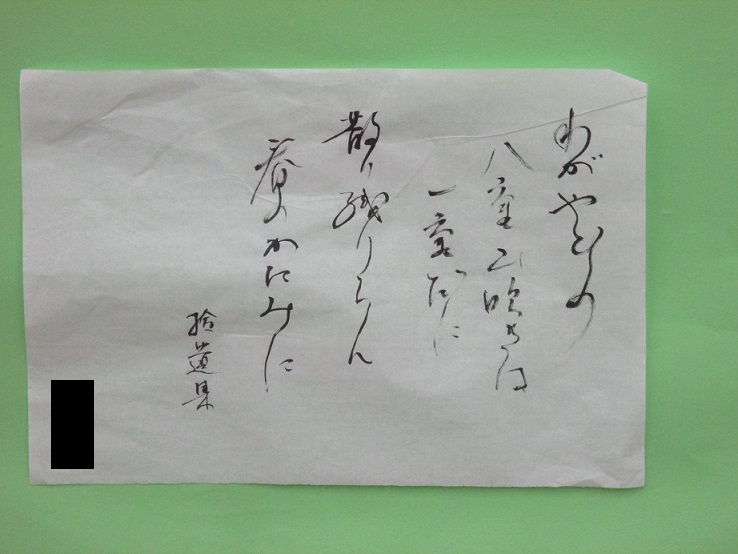 わがやどの
八重山吹きは
一重だに
散り残りらん
春のかたみに
拾遺集